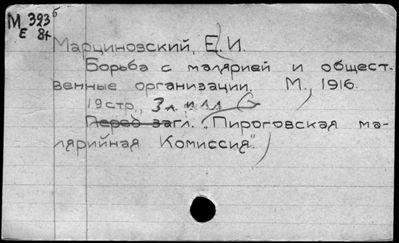 М 323б
Е 84
Марциновский, Е. И.
Борьба с малярией и общест-
венные организации. М., 1916.
19 стр.,
Перед загл. "Пироговская ма-
лярийная Комиссия".